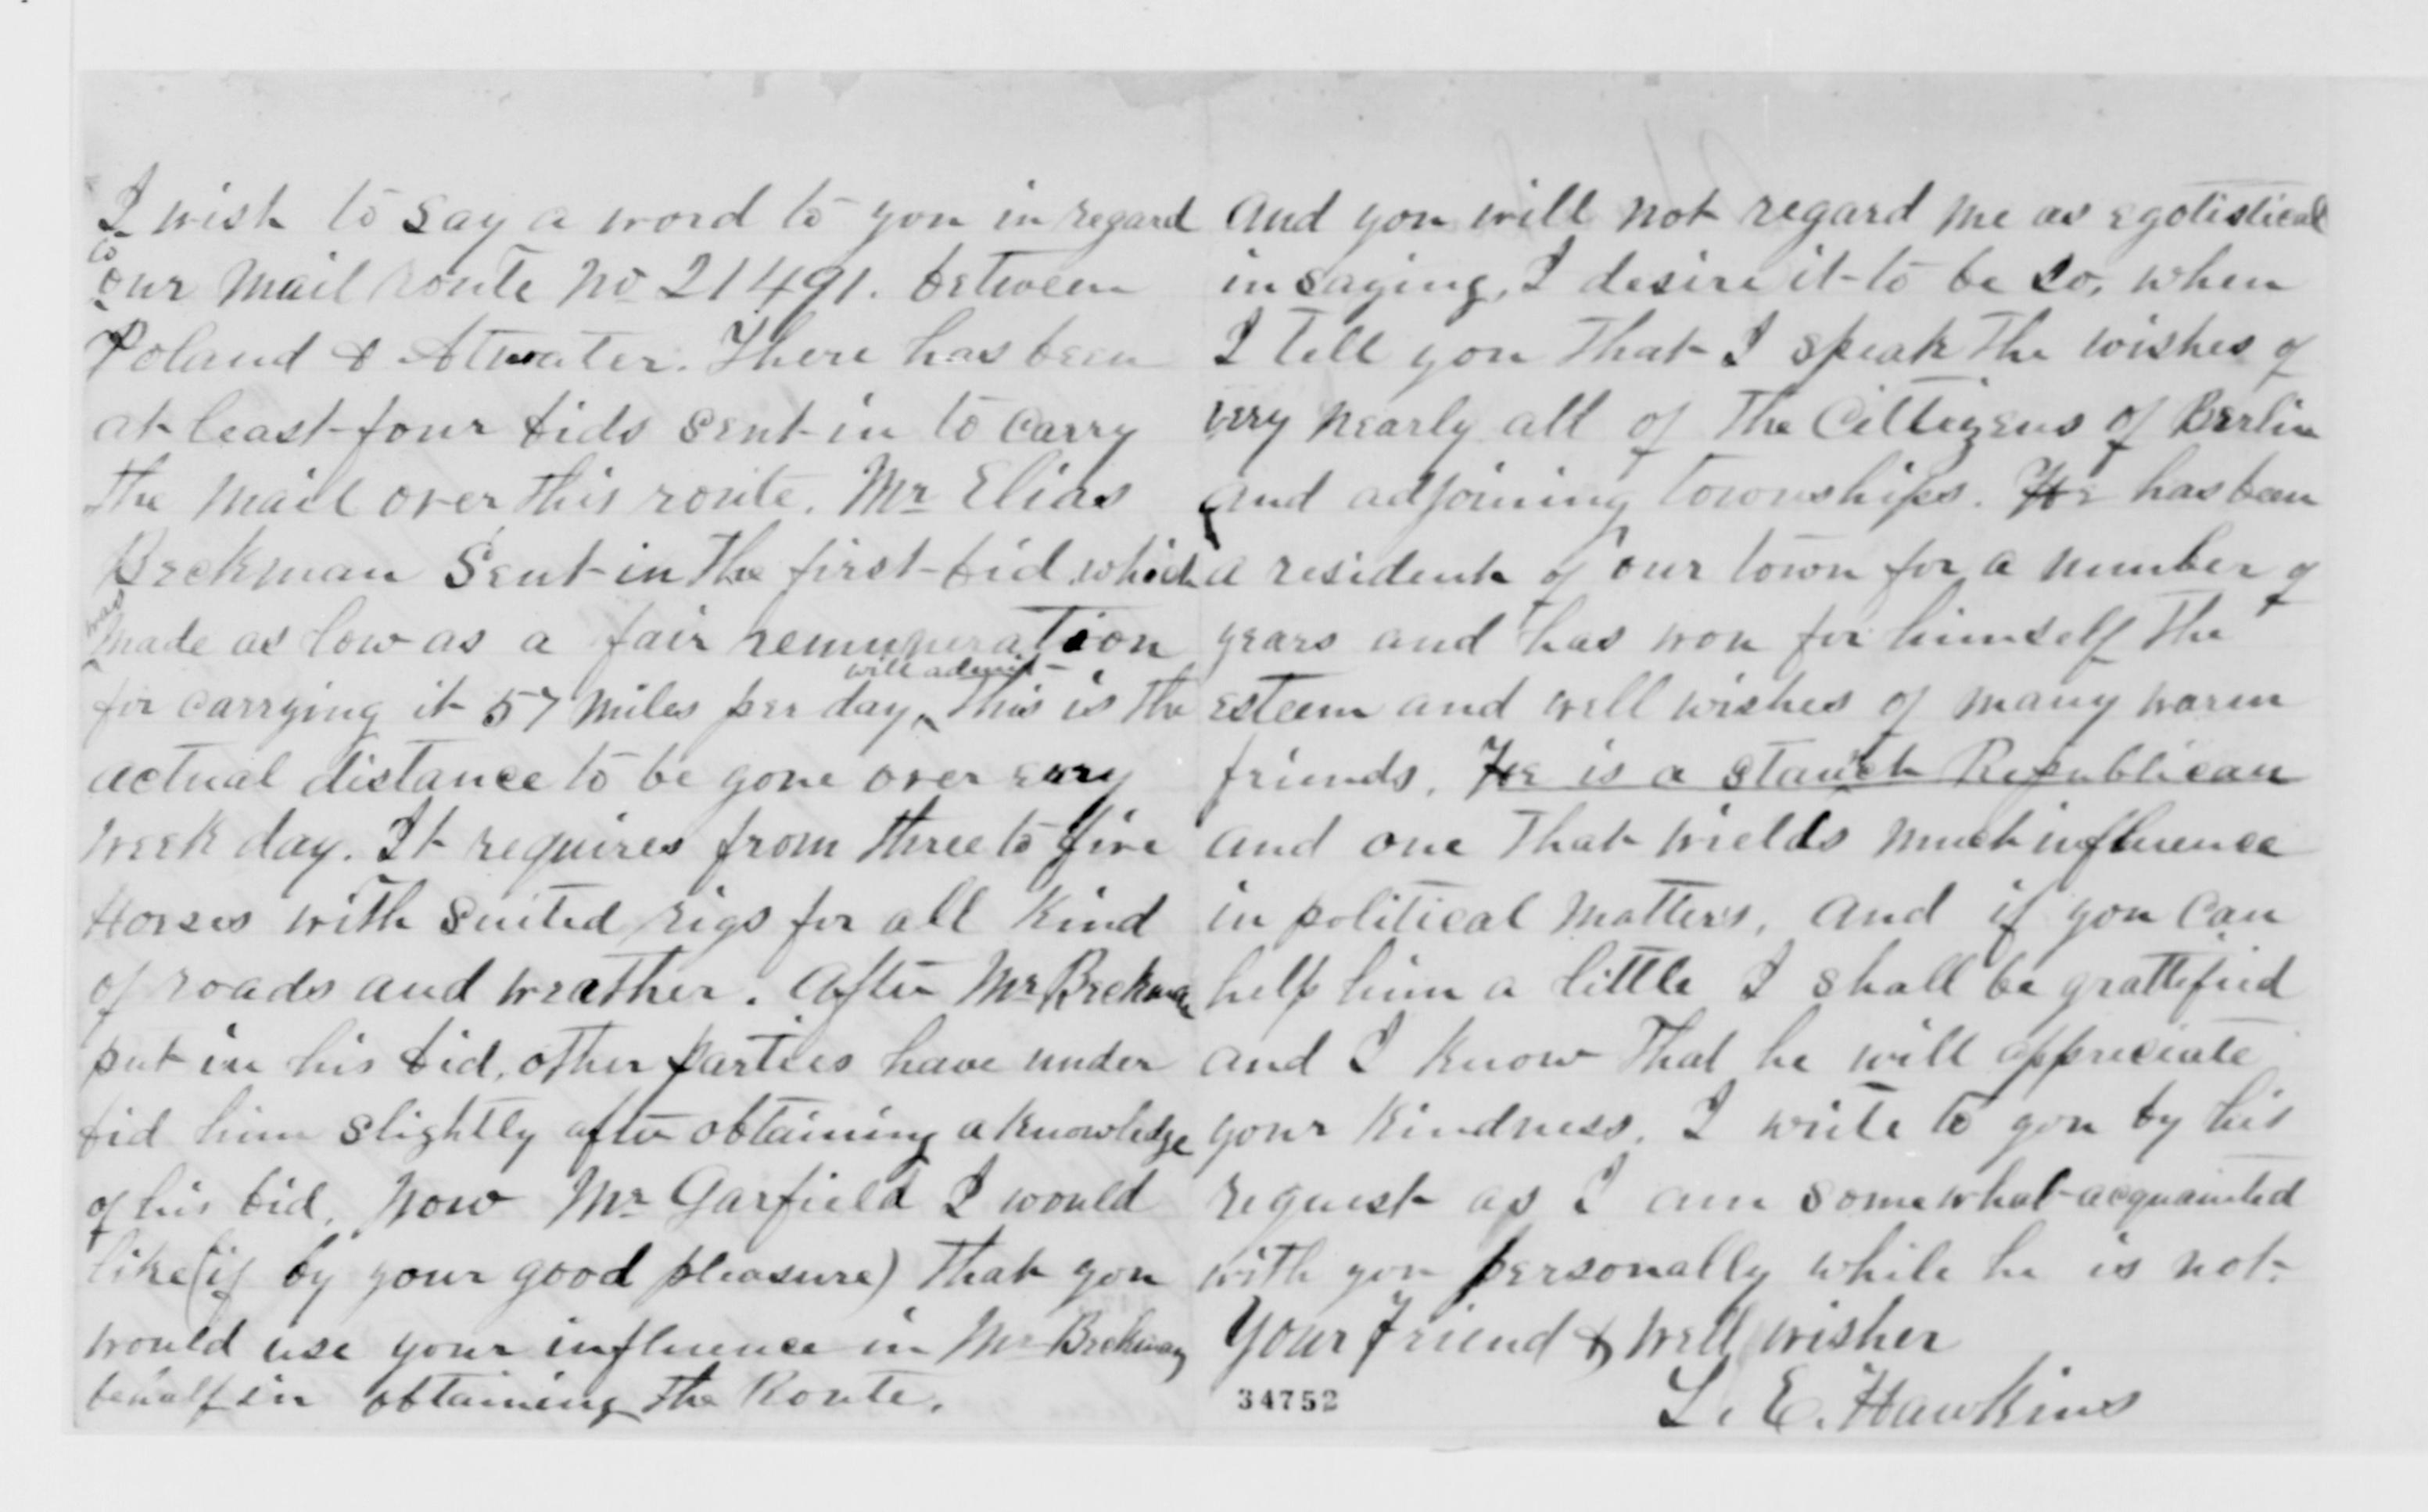 I wish to say a word to you in regard
to
our Mail Route No 21491. between
Poland & Atwater. There has been
at least four bids sent in to carry
the Mail over this route. Mr Elias
Beckman Sent in the first bid which
was
made as low as a fair remuneration
will admit
for carrying it 57 Miles per day, This is the
actual distance to be gone over every
week day. It requires from three to five
Horses with suited rigs for all kind
of roads and weather. After Mr Beckman
put in his bid, other parties have under
bid him slightly after obtaining a knowledge
of his bid. Now Mr Garfield I would
like (if by your good pleasure) that you
would use your influence in Mr Beckman
behalf in obtaining the Route.
And you will not regard me as egotistical
in saying, I desire it to be so, when
I tell you that I speak the wishes of
very nearly all of the Cittizens of Berlin
and adjoining townships. He has been
a resident of our town for a number of
years and has won for himself the
esteem and well wishes of many warm
friends. He is a stauch Republican
and one that wields much influence
in political matters, and if you can
help him a little I shall be grattified
and I know that he will appreciate
your kindness. I write to you by his
request as I am somewhat acquainted
with you personally while he is not.
Your friend & well wisher
34752
L. E. Hawkins